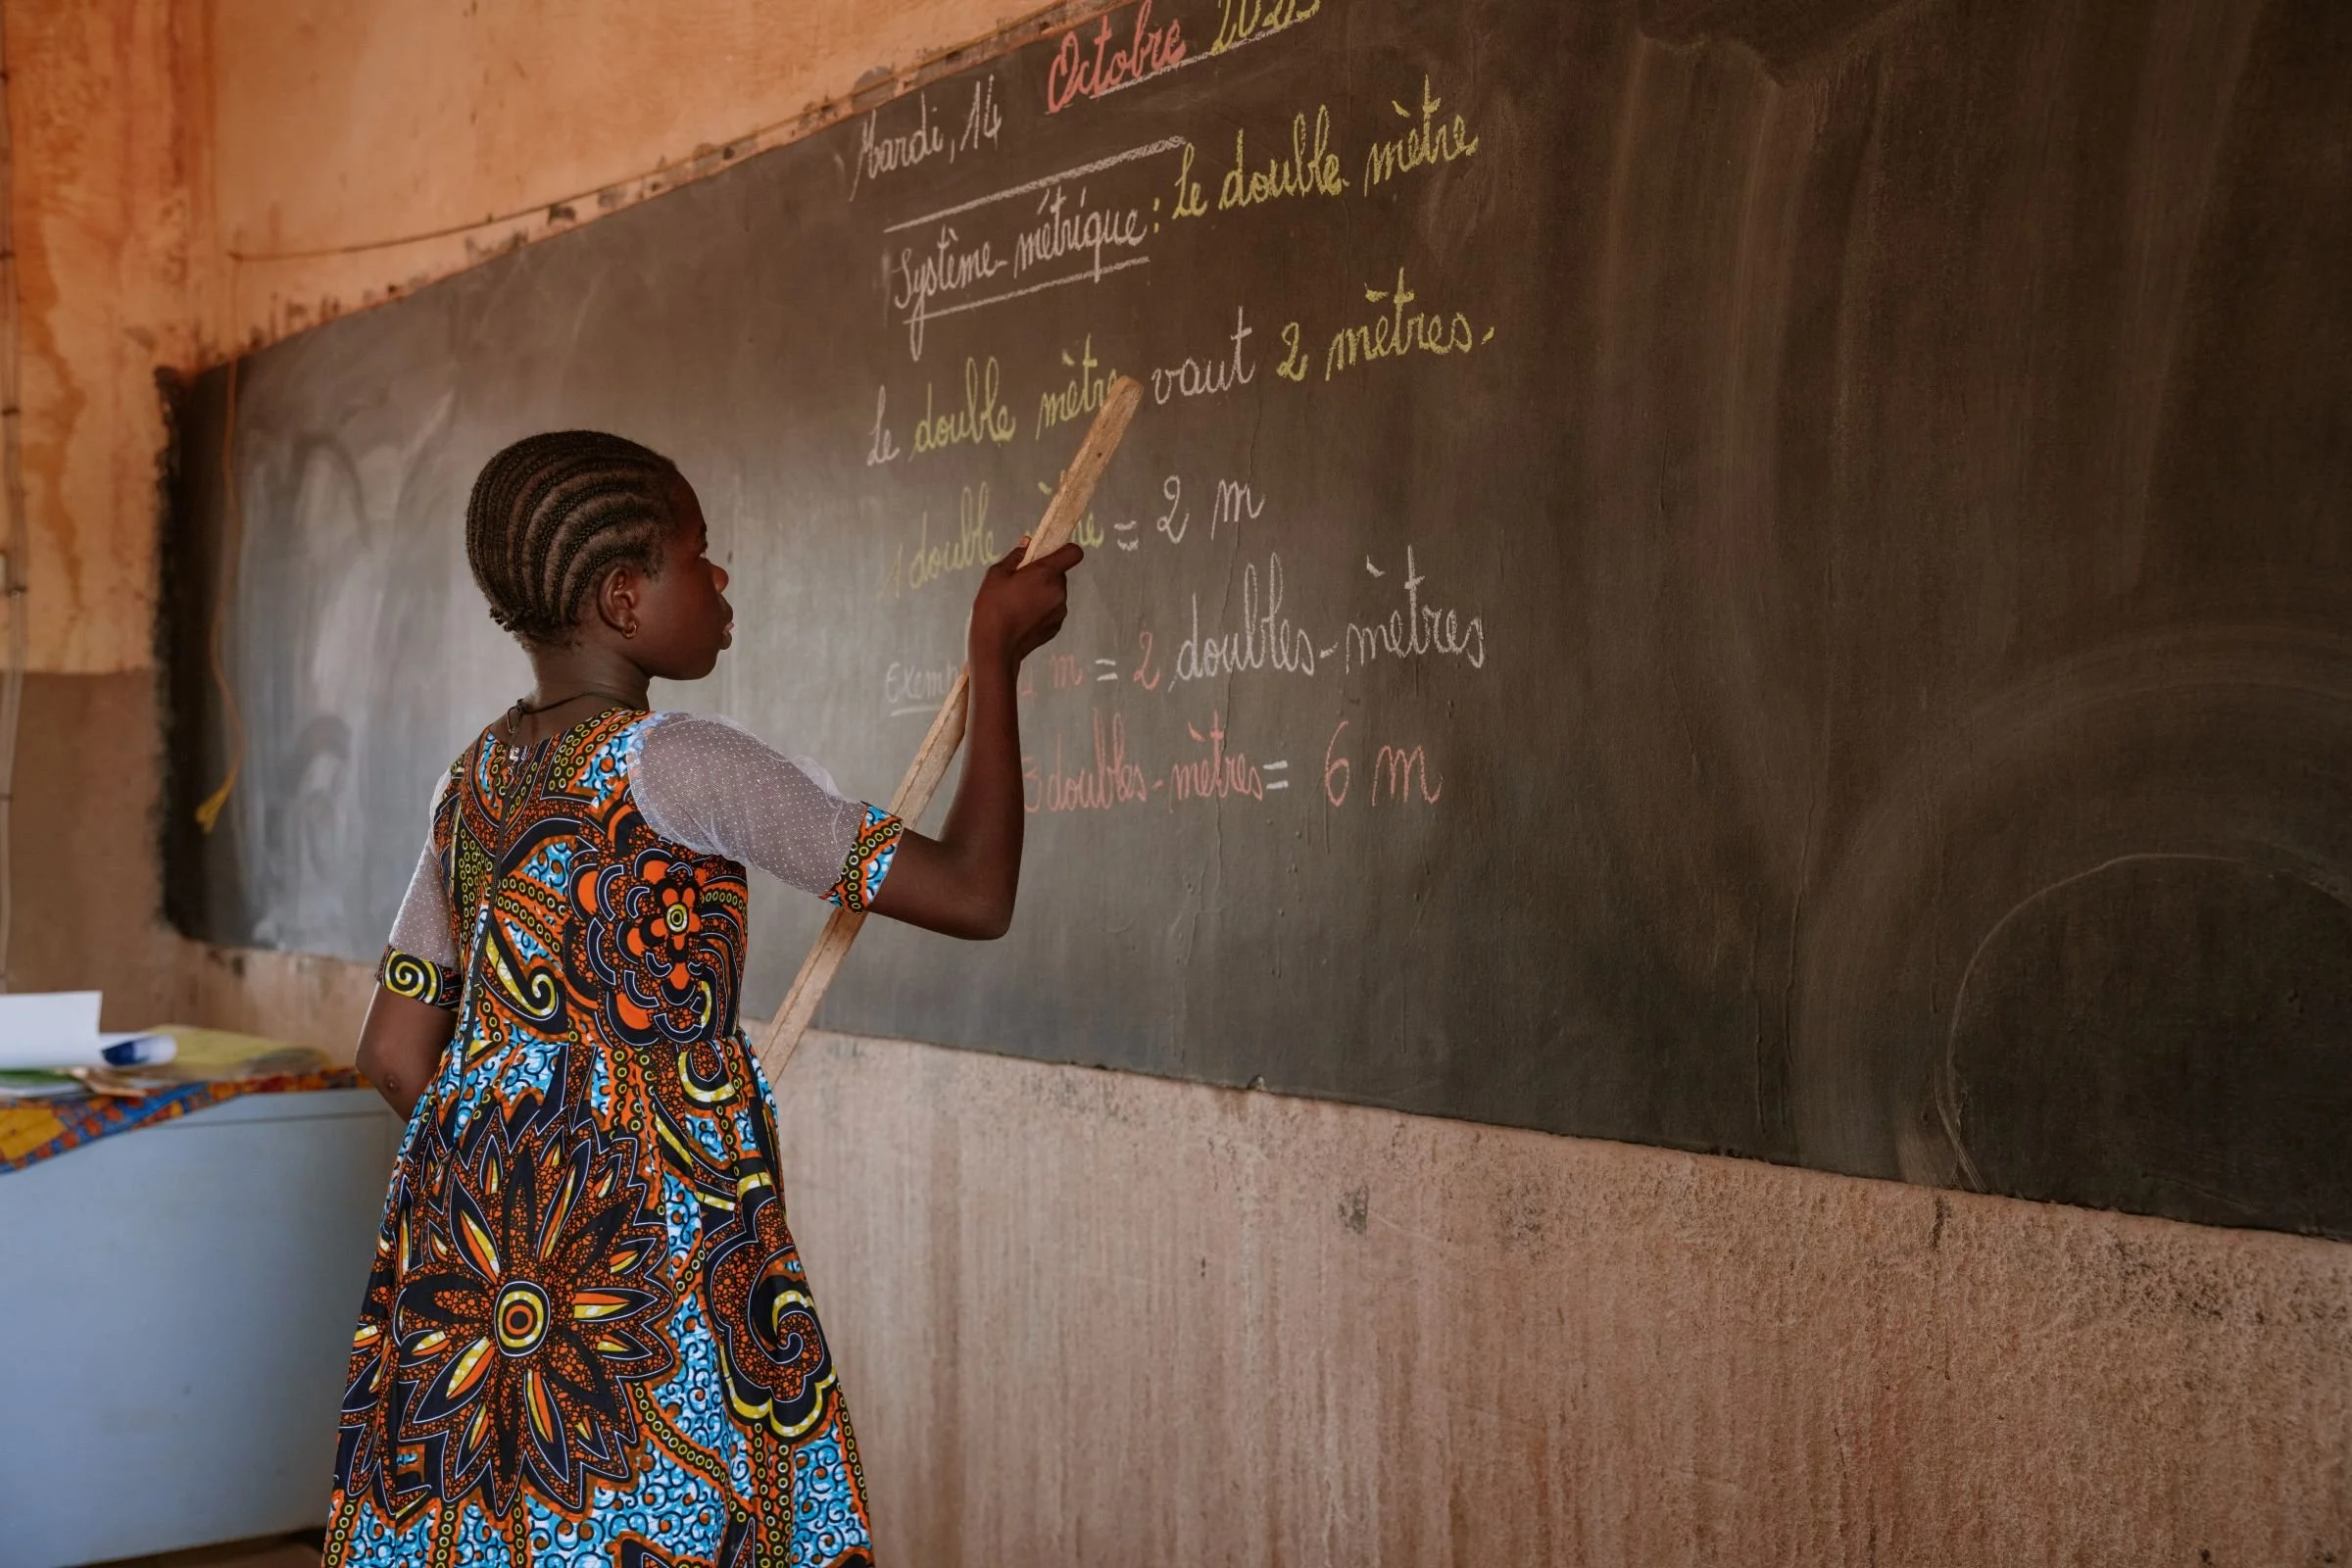 Mardi, 14 Octobre
Système-métrique : Le double mètre
Le double mètre vaut 2 mètres.
1 double = 2 m
m = 2 doubles-mètres
3 doubles-mètres = 6 m